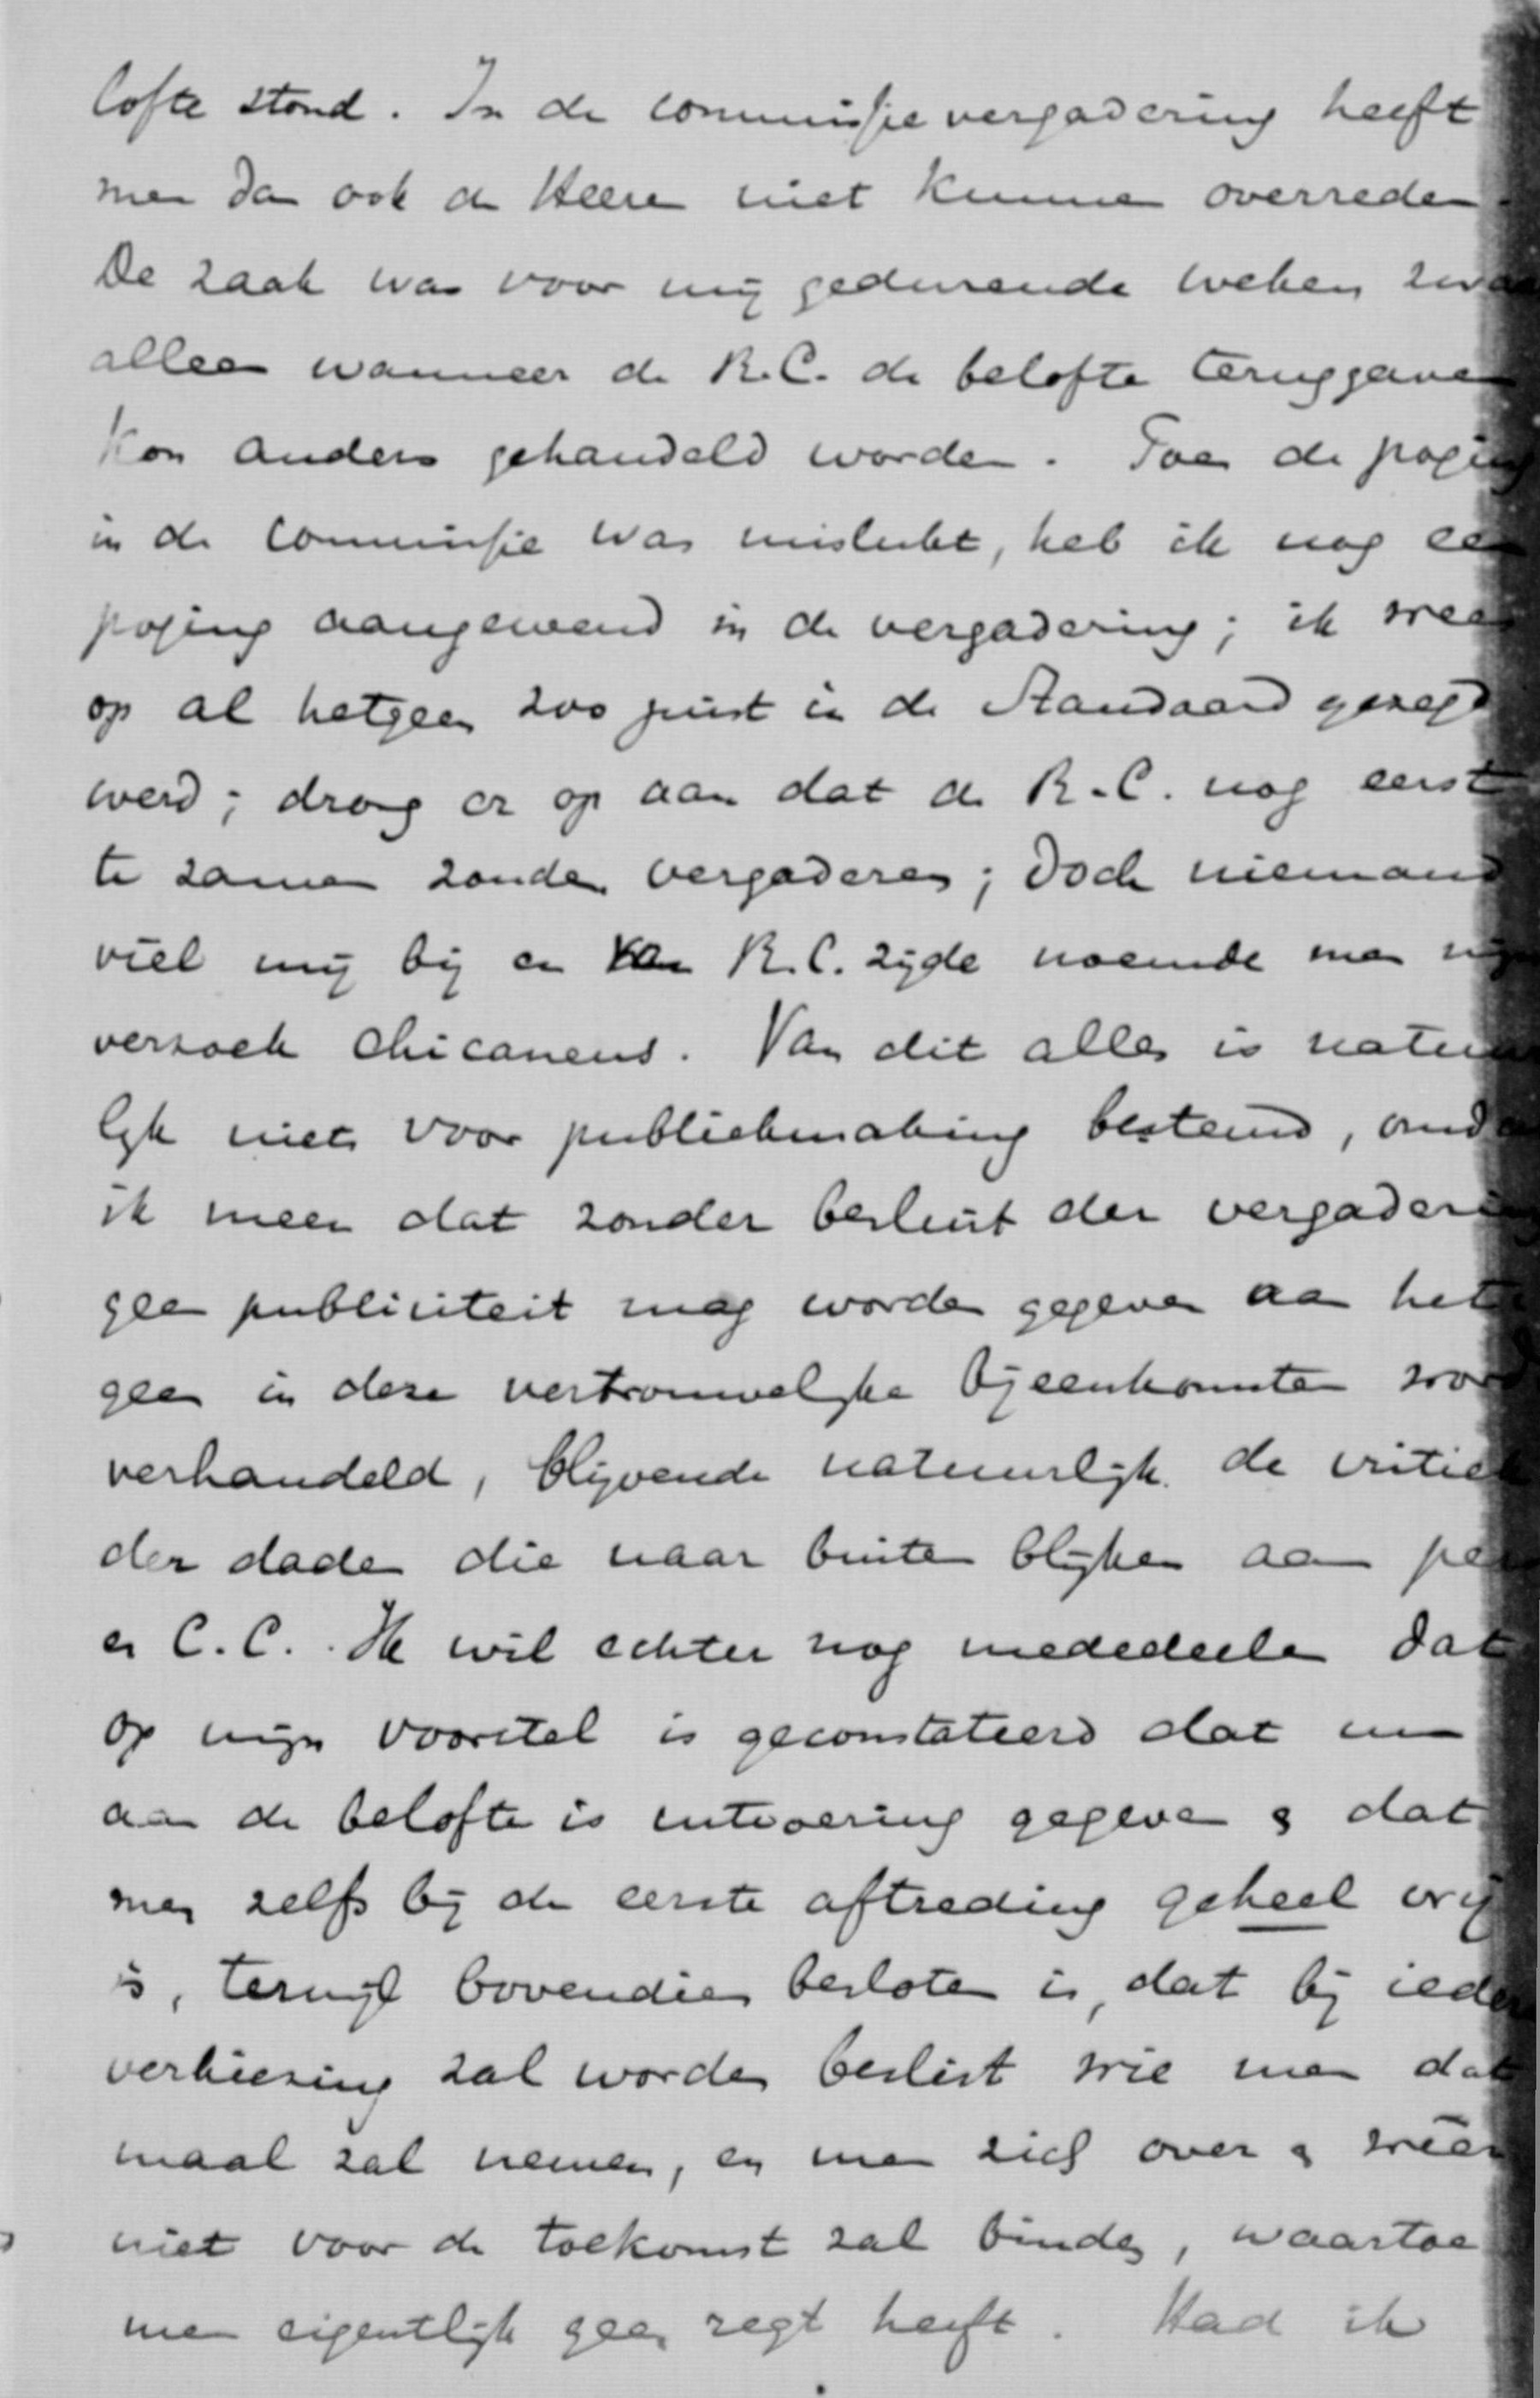 lofte stond. In de commissievergadering heeft
men dan ook de Heeren niet kunnen overreden.
De zaak was voor mij gedurende weken
alleen wanneer de R.C. de belofte teruggaven
kon anders gehandeld worden. Toen de poging
in de commissie was mislukt, heb ik nog een
poging aangewend in de vergadering; ik wees
op al hetgeen zoo juist in de Standaard gezegd
werd; drong er op aan dat de R.C. nog eerst
te zamen zouden vergaderen; doch niemand
viel mij bij en van R.C. zijde noemde men mijn
verzoek chicaneus. Van dit alles is natuur
lijk niets voor publiekmaking bestemd, omdat
ik meen dat zonder besluit der vergadering
geen publiciteit mag worden gegeven aan het
geen in deze vertrouwelijke bijeenkomsten wordt
verhandeld, blijvende natuurlijk de critiek
der daden die naar buiten blijken aan pers
en C.C. Ik wil echter nog mededeelen dat
op mijn voorstel is geconstateerd dat nu
aan de belofte is uitvoering gegeven & dat
men zelfs bij de eerste aftreding geheel vrij
is, terwijl bovendien besloten is, dat bij iedere
verkiezing zal worden beslist wie men dat
maal zal nemen, en men zich over & weer
niet voor de toekomst zal binden, waartoe
men eigentlijk geen regt heeft. Had ik